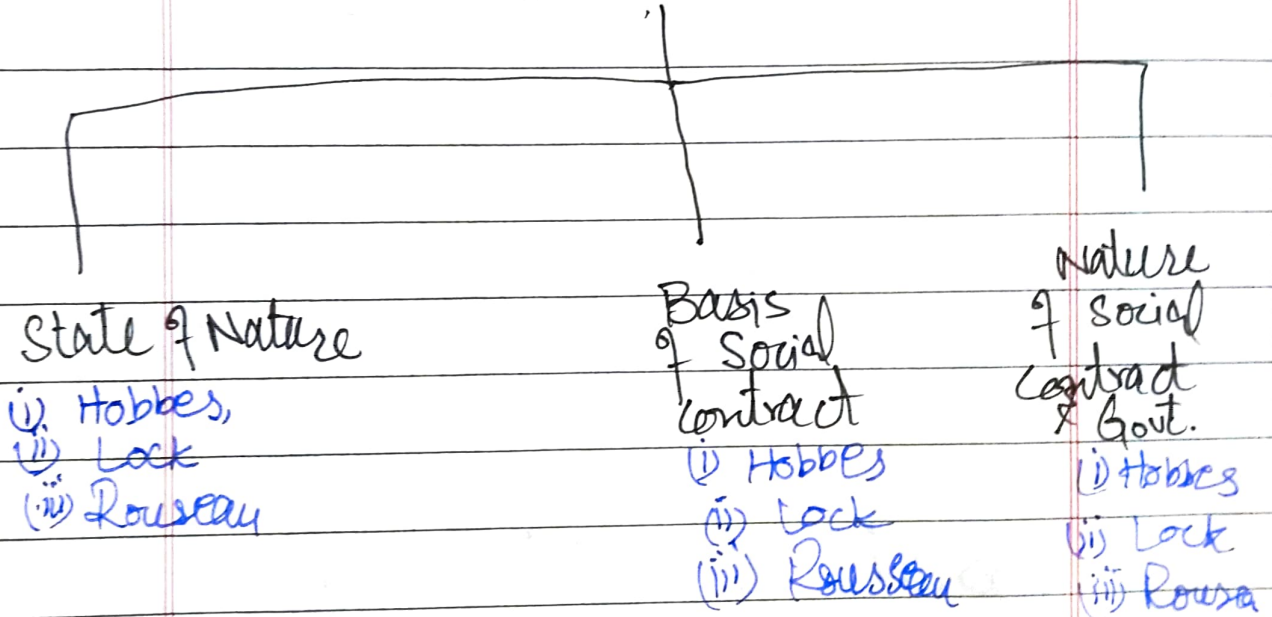 State of Nature
(i) Hobbes,
(ii) Lock
(iii) Rouseau
Basis
of Social
Contract
(i) Hobbes
(ii) Lock
(iii) Rousseau
Nature
of Social
Contract
& Govt.
(i) Hobbes
(ii) Lock
(iii) Rousa